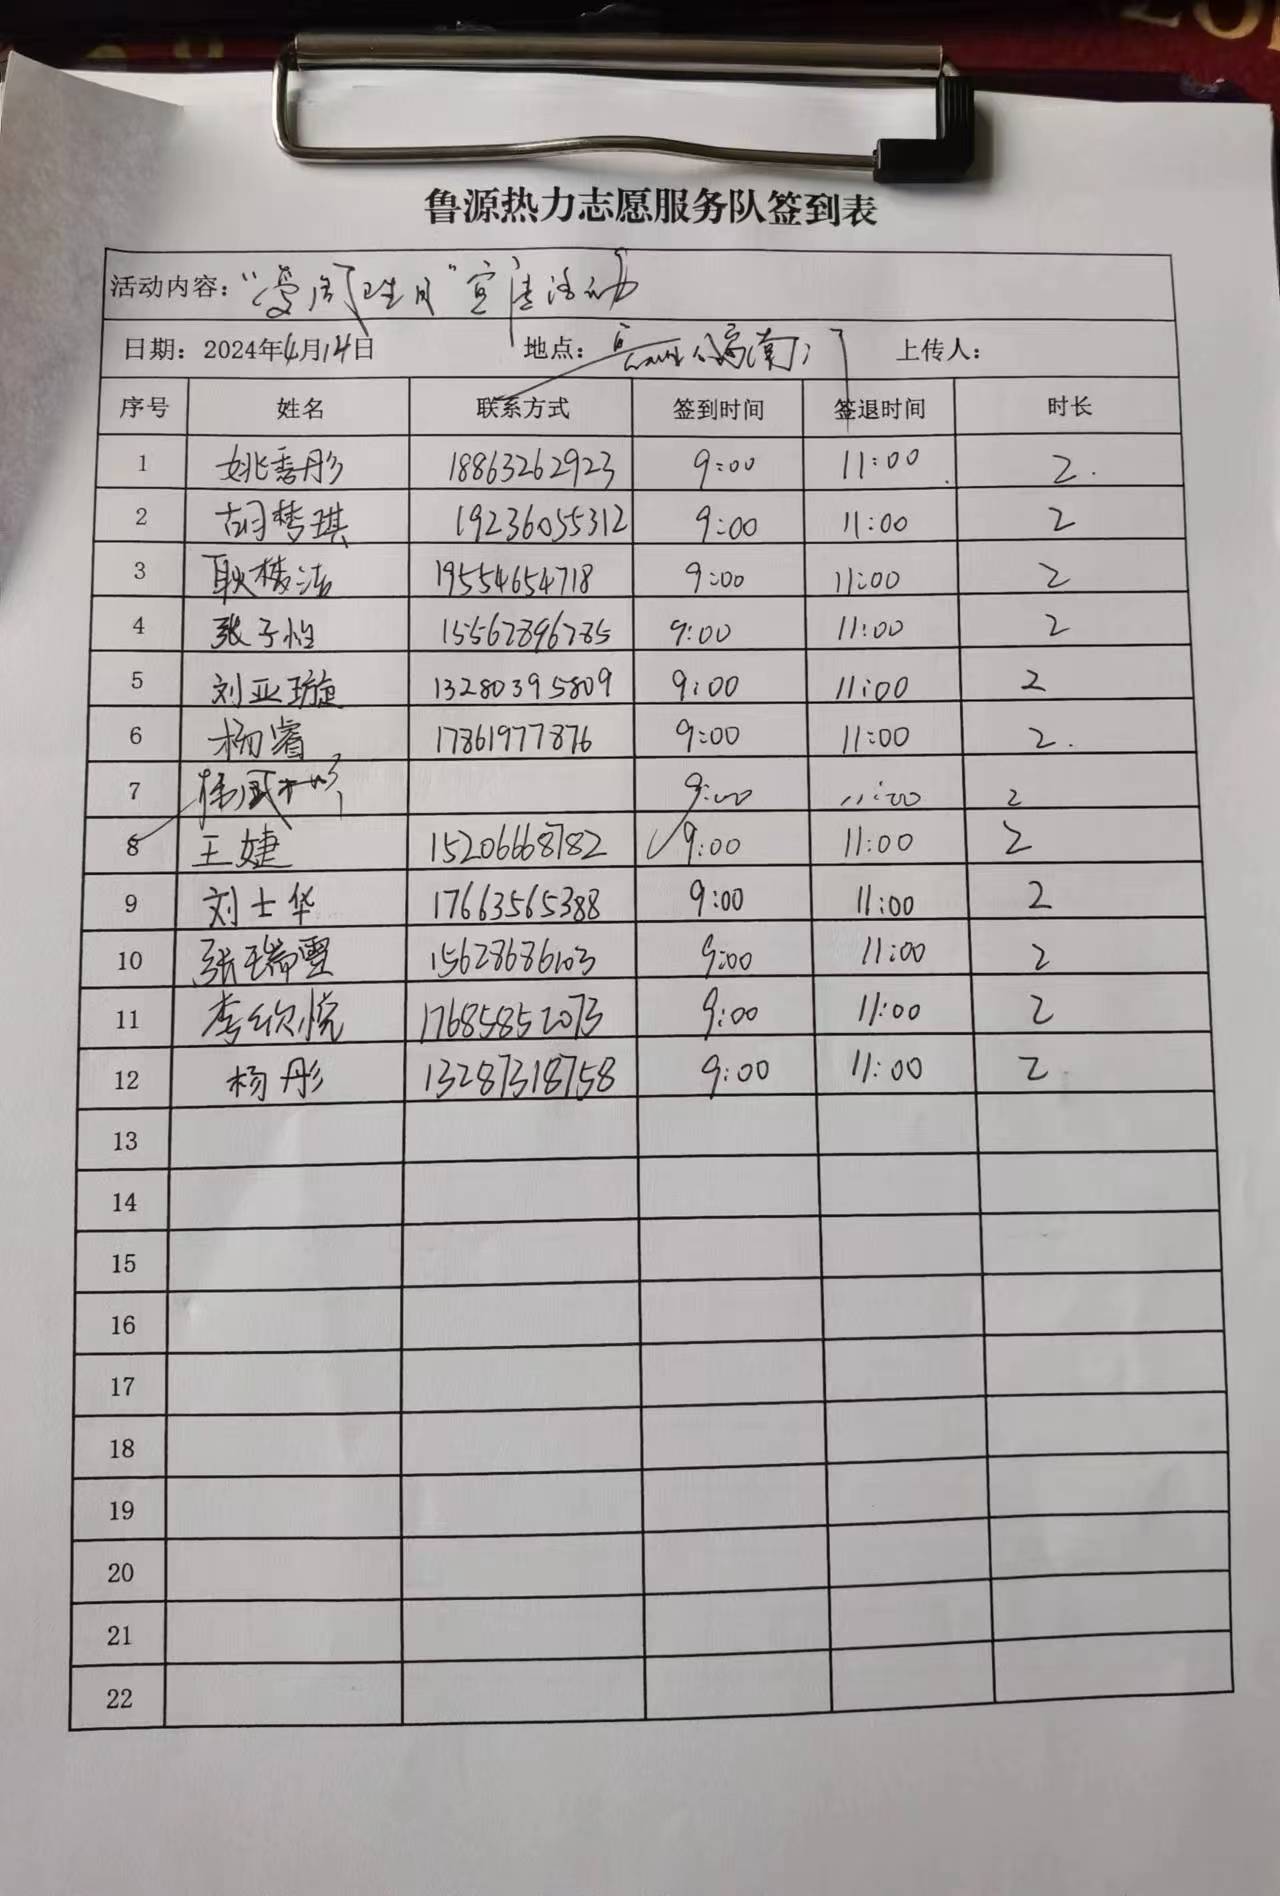 鲁源热力志愿服务队签到表
活动内容：“爱国卫生月”宣传活动
日期：2024年4月14日 地点： 南门 上传人：
序号 姓名 联系方式 签到时间 签退时间 时长
1 姚香彤 18863262923 9:00 11:00 2.
2 胡梦琪 19236055312 9:00 11:00 2
3 耿梦洁 19554654718 9:00 11:00 2
4 张子怡 15562896785 9:00 11:00 2
5 刘亚璇 13280395809 9:00 11:00 2
6 杨睿 17861977876 9:00 11:00 2.
7 9:00 11:00 2
8 王婕 15206668782 9:00 11:00 2
9 刘士华 17663565388 9:00 11:00 2
10 张瑞雪 15628686103 9:00 11:00 2
11 李欣悦 17685852073 9:00 11:00 2
12 杨彤 13287318758 9:00 11:00 2
13
14
15
16
17
18
19
20
21
22